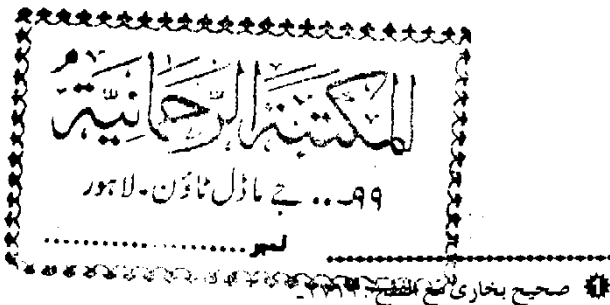 المكتبة الرحمانية
۹۹۔.. جے ماڈل ٹاؤن ۔ لاہور
نمبر ..................
صحیح بخاری مع الفتح: